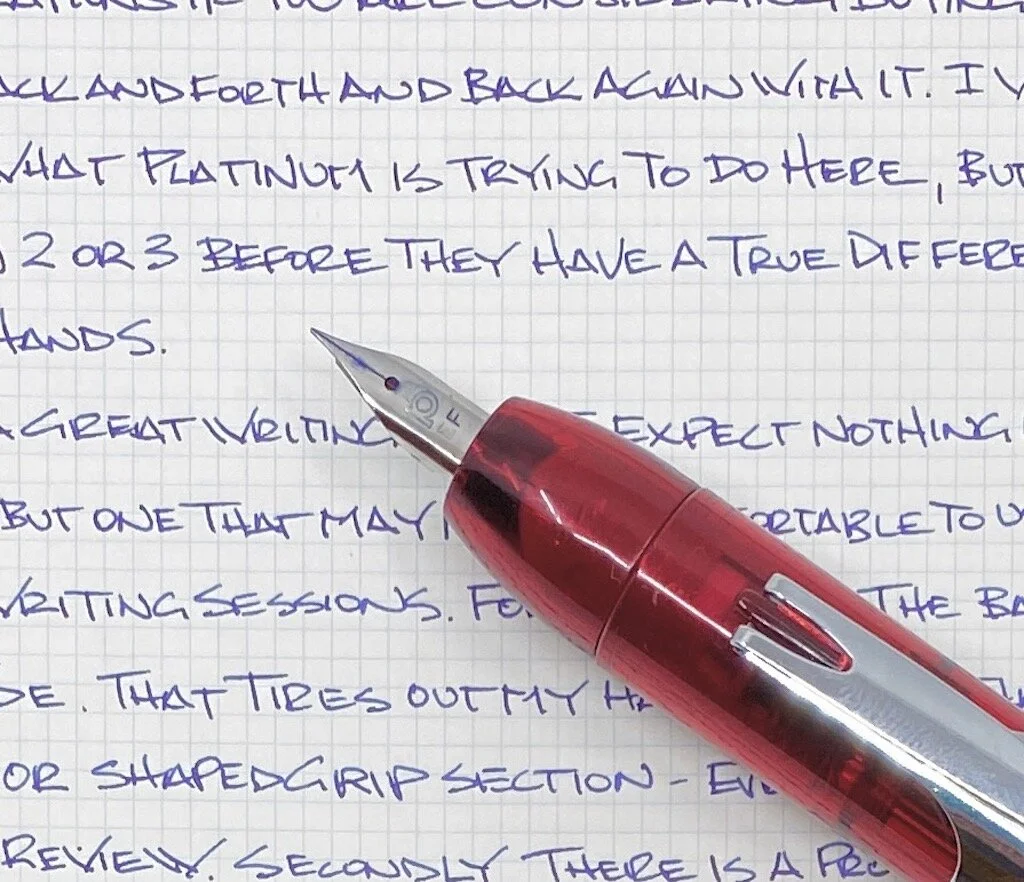 BACK AND FORTH AND BACK AGAIN WITH IT. I
WHAT PLATINUM IS TRYING TO DO HERE, BUT
2 OR 3 BEFORE THEY HAVE A TRUE
HANDS.
A GREAT WRITING EXPECT NOTHING
BUT ONE THAT MAY TO
WRITING SESSIONS. THE
THAT TIRES OUT MY
OR SHAPED GRIP SECTION -
REVIEW. SECONDLY THERE IS A
F